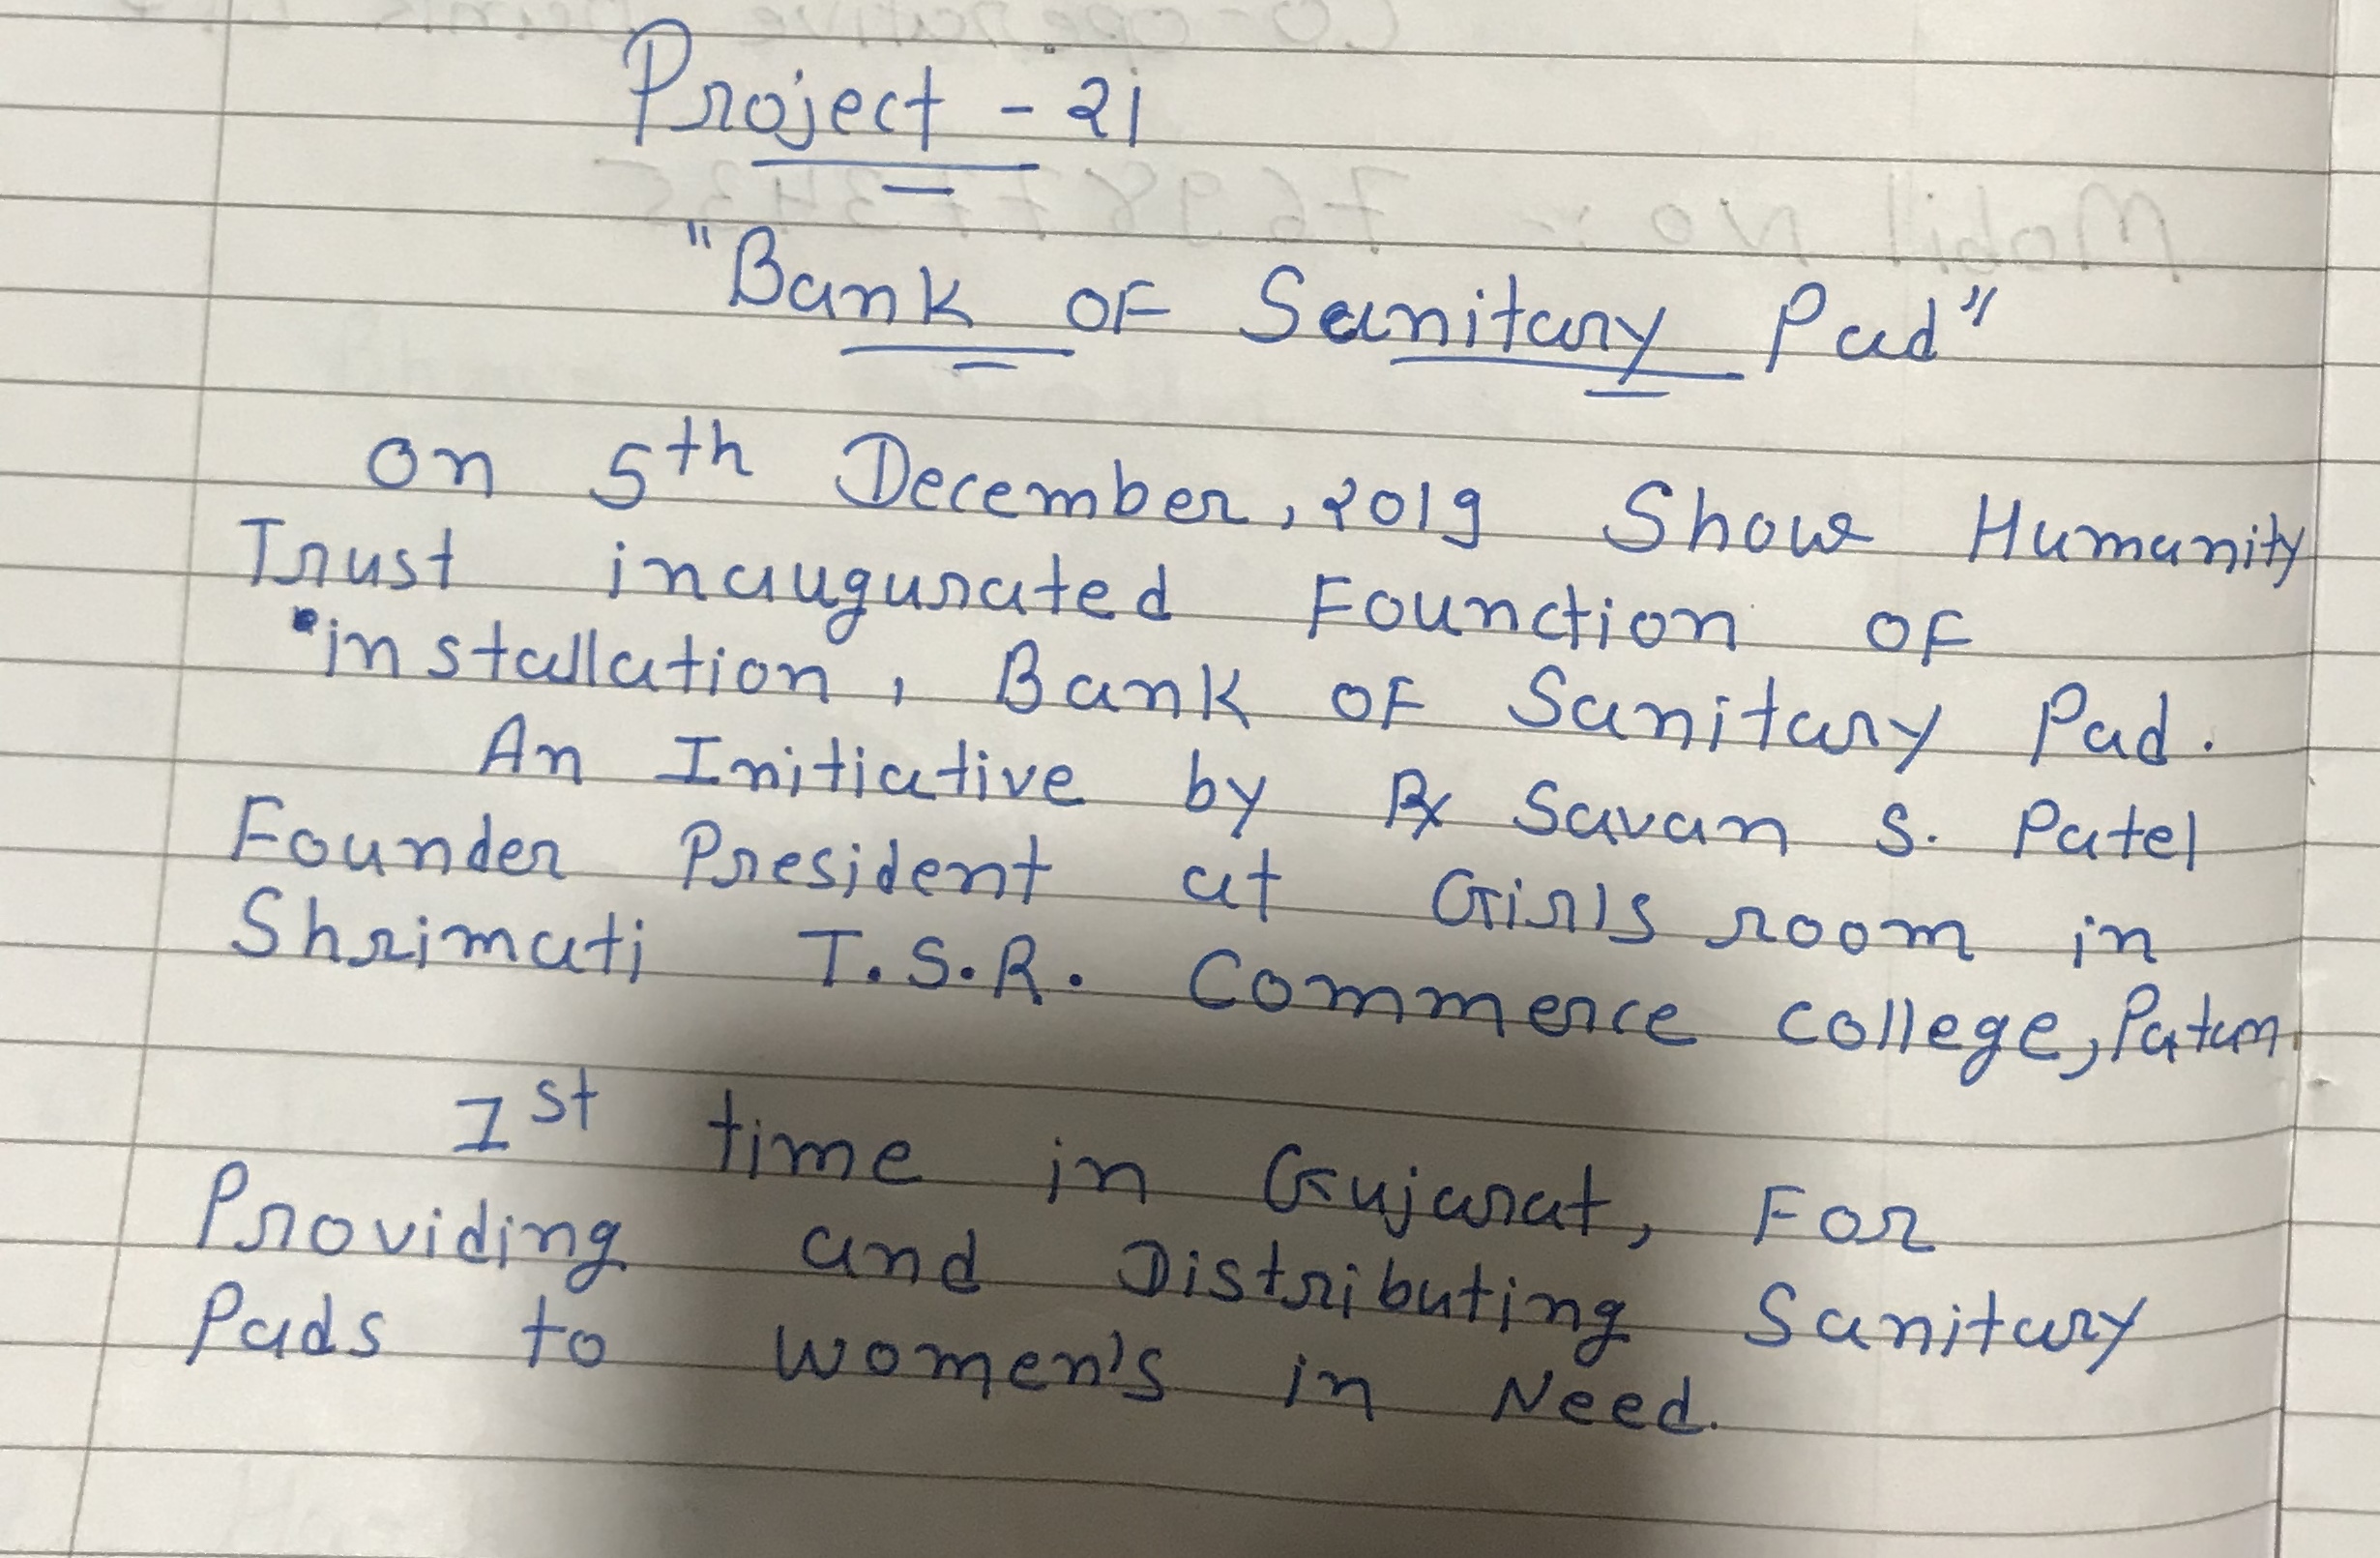 Project - 21
"Bank OF Sanitary Pad"
On 5th December, 2019 Show Humanity
Trust inaugurated Founction OF
installation, Bank OF Sanitary Pad.
An Initiative by Rx Savan S. Patel
Founder President at Girls room in
Shrimati T.S.R. Commerce College, Patan
1st time in Gujarat, For
Providing and Distributing Sanitary
Pads to women's in Need.